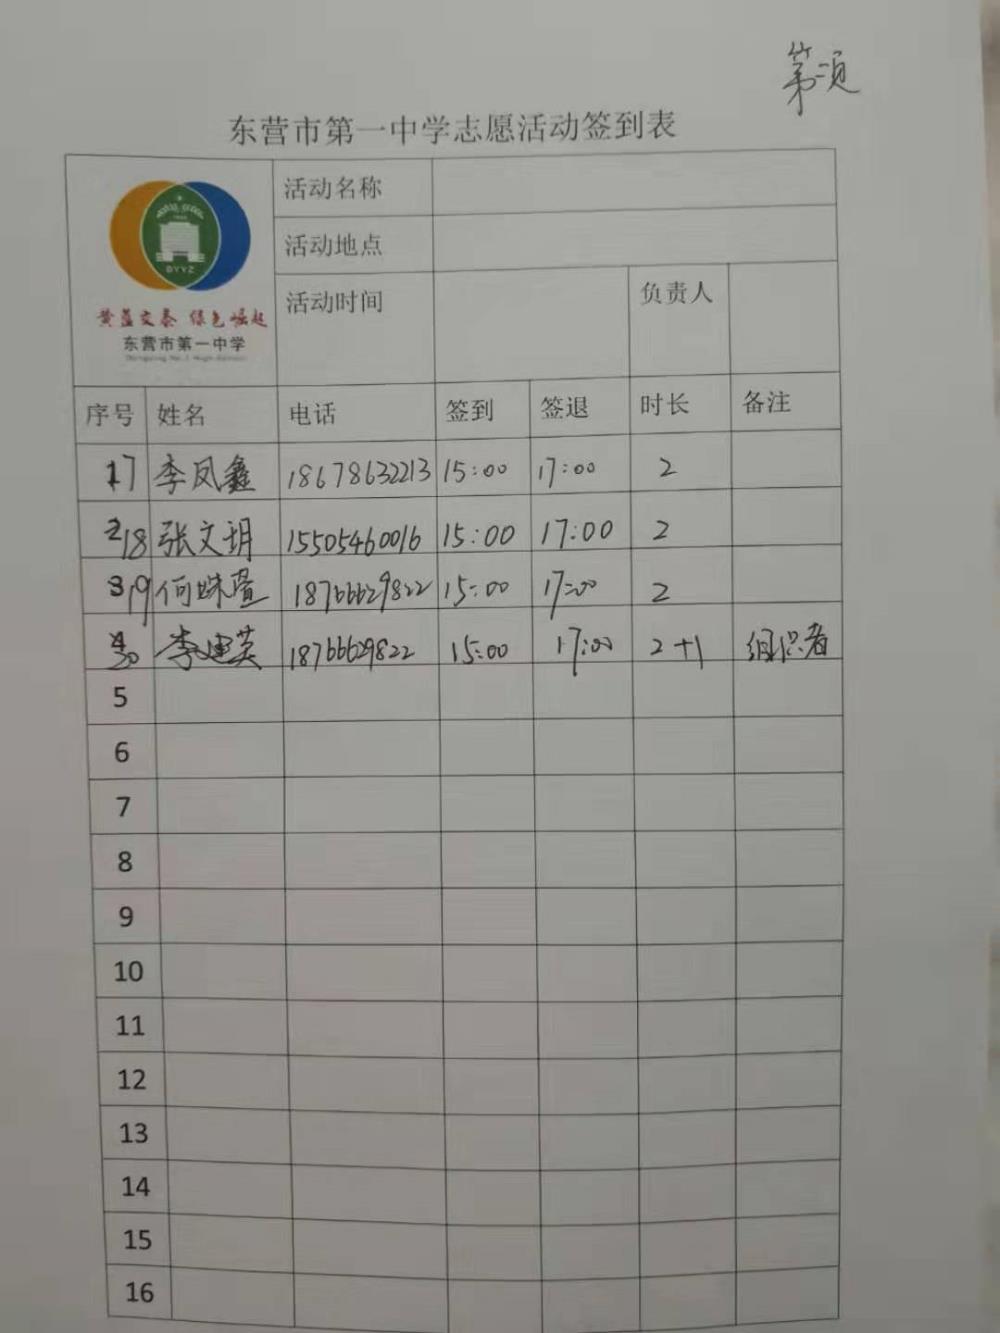 第二页
东营市第一中学志愿活动签到表
DYYZ
黄蓝交泰 绿色崛起
东营市第一中学
活动名称
活动地点
活动时间 负责人
序号 姓名 电话 签到 签退 时长 备注
17 李凤鑫 18678632213 15:00 17:00 2
18 张文玥 15505460016 15:00 17:00 2
19 何姝萱 18766629822 15:00 17:00 2
20 李迪英 18766629822 15:00 17:00 2+1 组织者
5
6
7
8
9
10
11
12
13
14
15
16